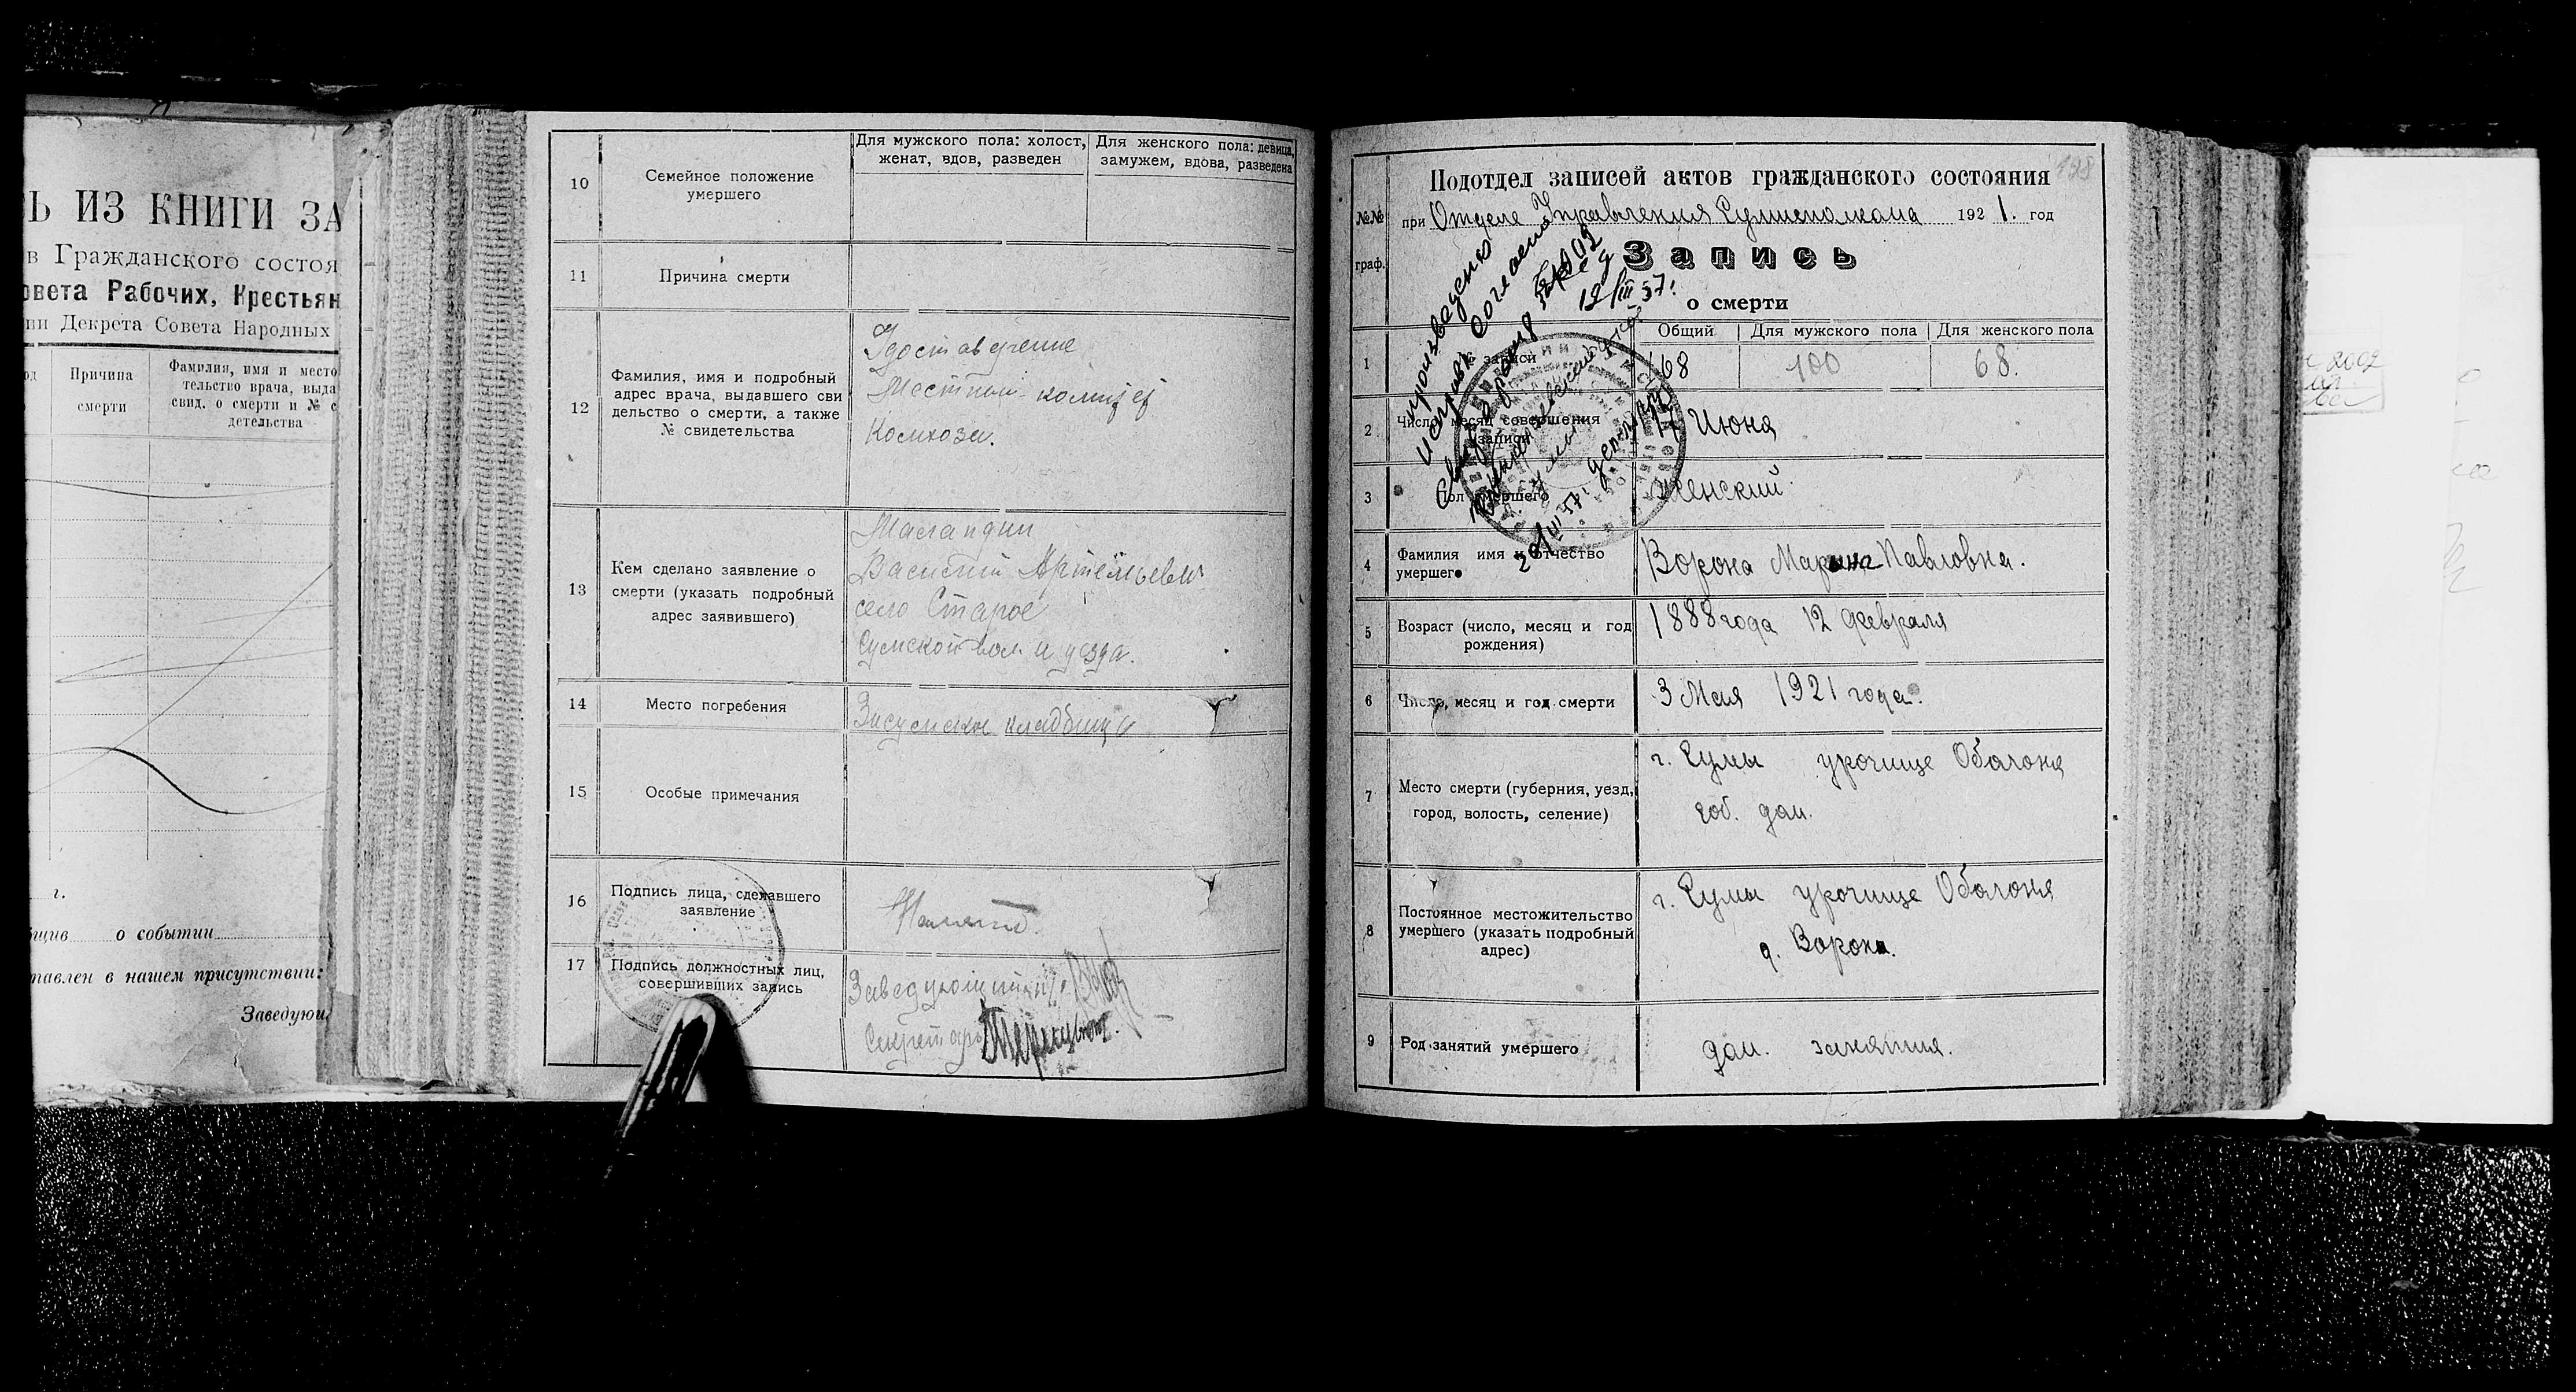 Ь ИЗ КНИГИ ЗА
в Гражданского состоя
овета Рабочих, Крестьян
ии Декрета Совета Народных
Причина
смерти
Фамилия, имя и место
тельство врача, выда
свид. о смерти и № с
детельства
г.
бщив о событии
тавлен в нашем присутствии:
Заведую
10
Семейное положение
умершего
Для мужского пола: холост,
женат, вдов, разведен
Для женского пола: девица,
замужем, вдова, разведена
11
Причина смерти
12
Фамилия, имя и подробный
адрес врача, выдавшего сви
дельство о смерти, а также
№ свидетельства
Удоставерение
Местком
Комхоза.
13
Кем сделано заявление о
смерти (указать подробный
адрес заявившего)
Василий Артемьевич
село Старое
Сумской вол. и уезда.
14
Место погребения
Засумское кладбище
15
Особые примечания
16
Подпись лица, сделавшего
заявление
17
Подпись должностных лиц,
совершивших запись
Заведующий
Секретарь
128
№№
граф.
Подотдел записей актов гражданского состояния
при Отделе Управления Сумисполкома 1921. год
Запись
о смерти
исправлен
произведено
согласно
19/III 57г.
20/III-57
1
№ записи
Общий
Для мужского пола
Для женского пола
168
100
68.
2
Число, месяц совершения
записи
17 Июня
3
Пол умершего
Женский
4
Фамилия имя и отчество
умершего
Ворона Марина Павловна.
5
Возраст (число, месяц и год
рождения)
1888 года 12 февраля
6
Число, месяц и год смерти
3 Мая 1921 года.
7
Место смерти (губерния, уезд,
город, волость, селение)
г. Сумы урочище Оболоня
соб. дом.
8
Постоянное местожительство
умершего (указать подробный
адрес)
г. Сумы урочище Оболоня
д. Ворона.
9
Род занятий умершего
дом. занятия.